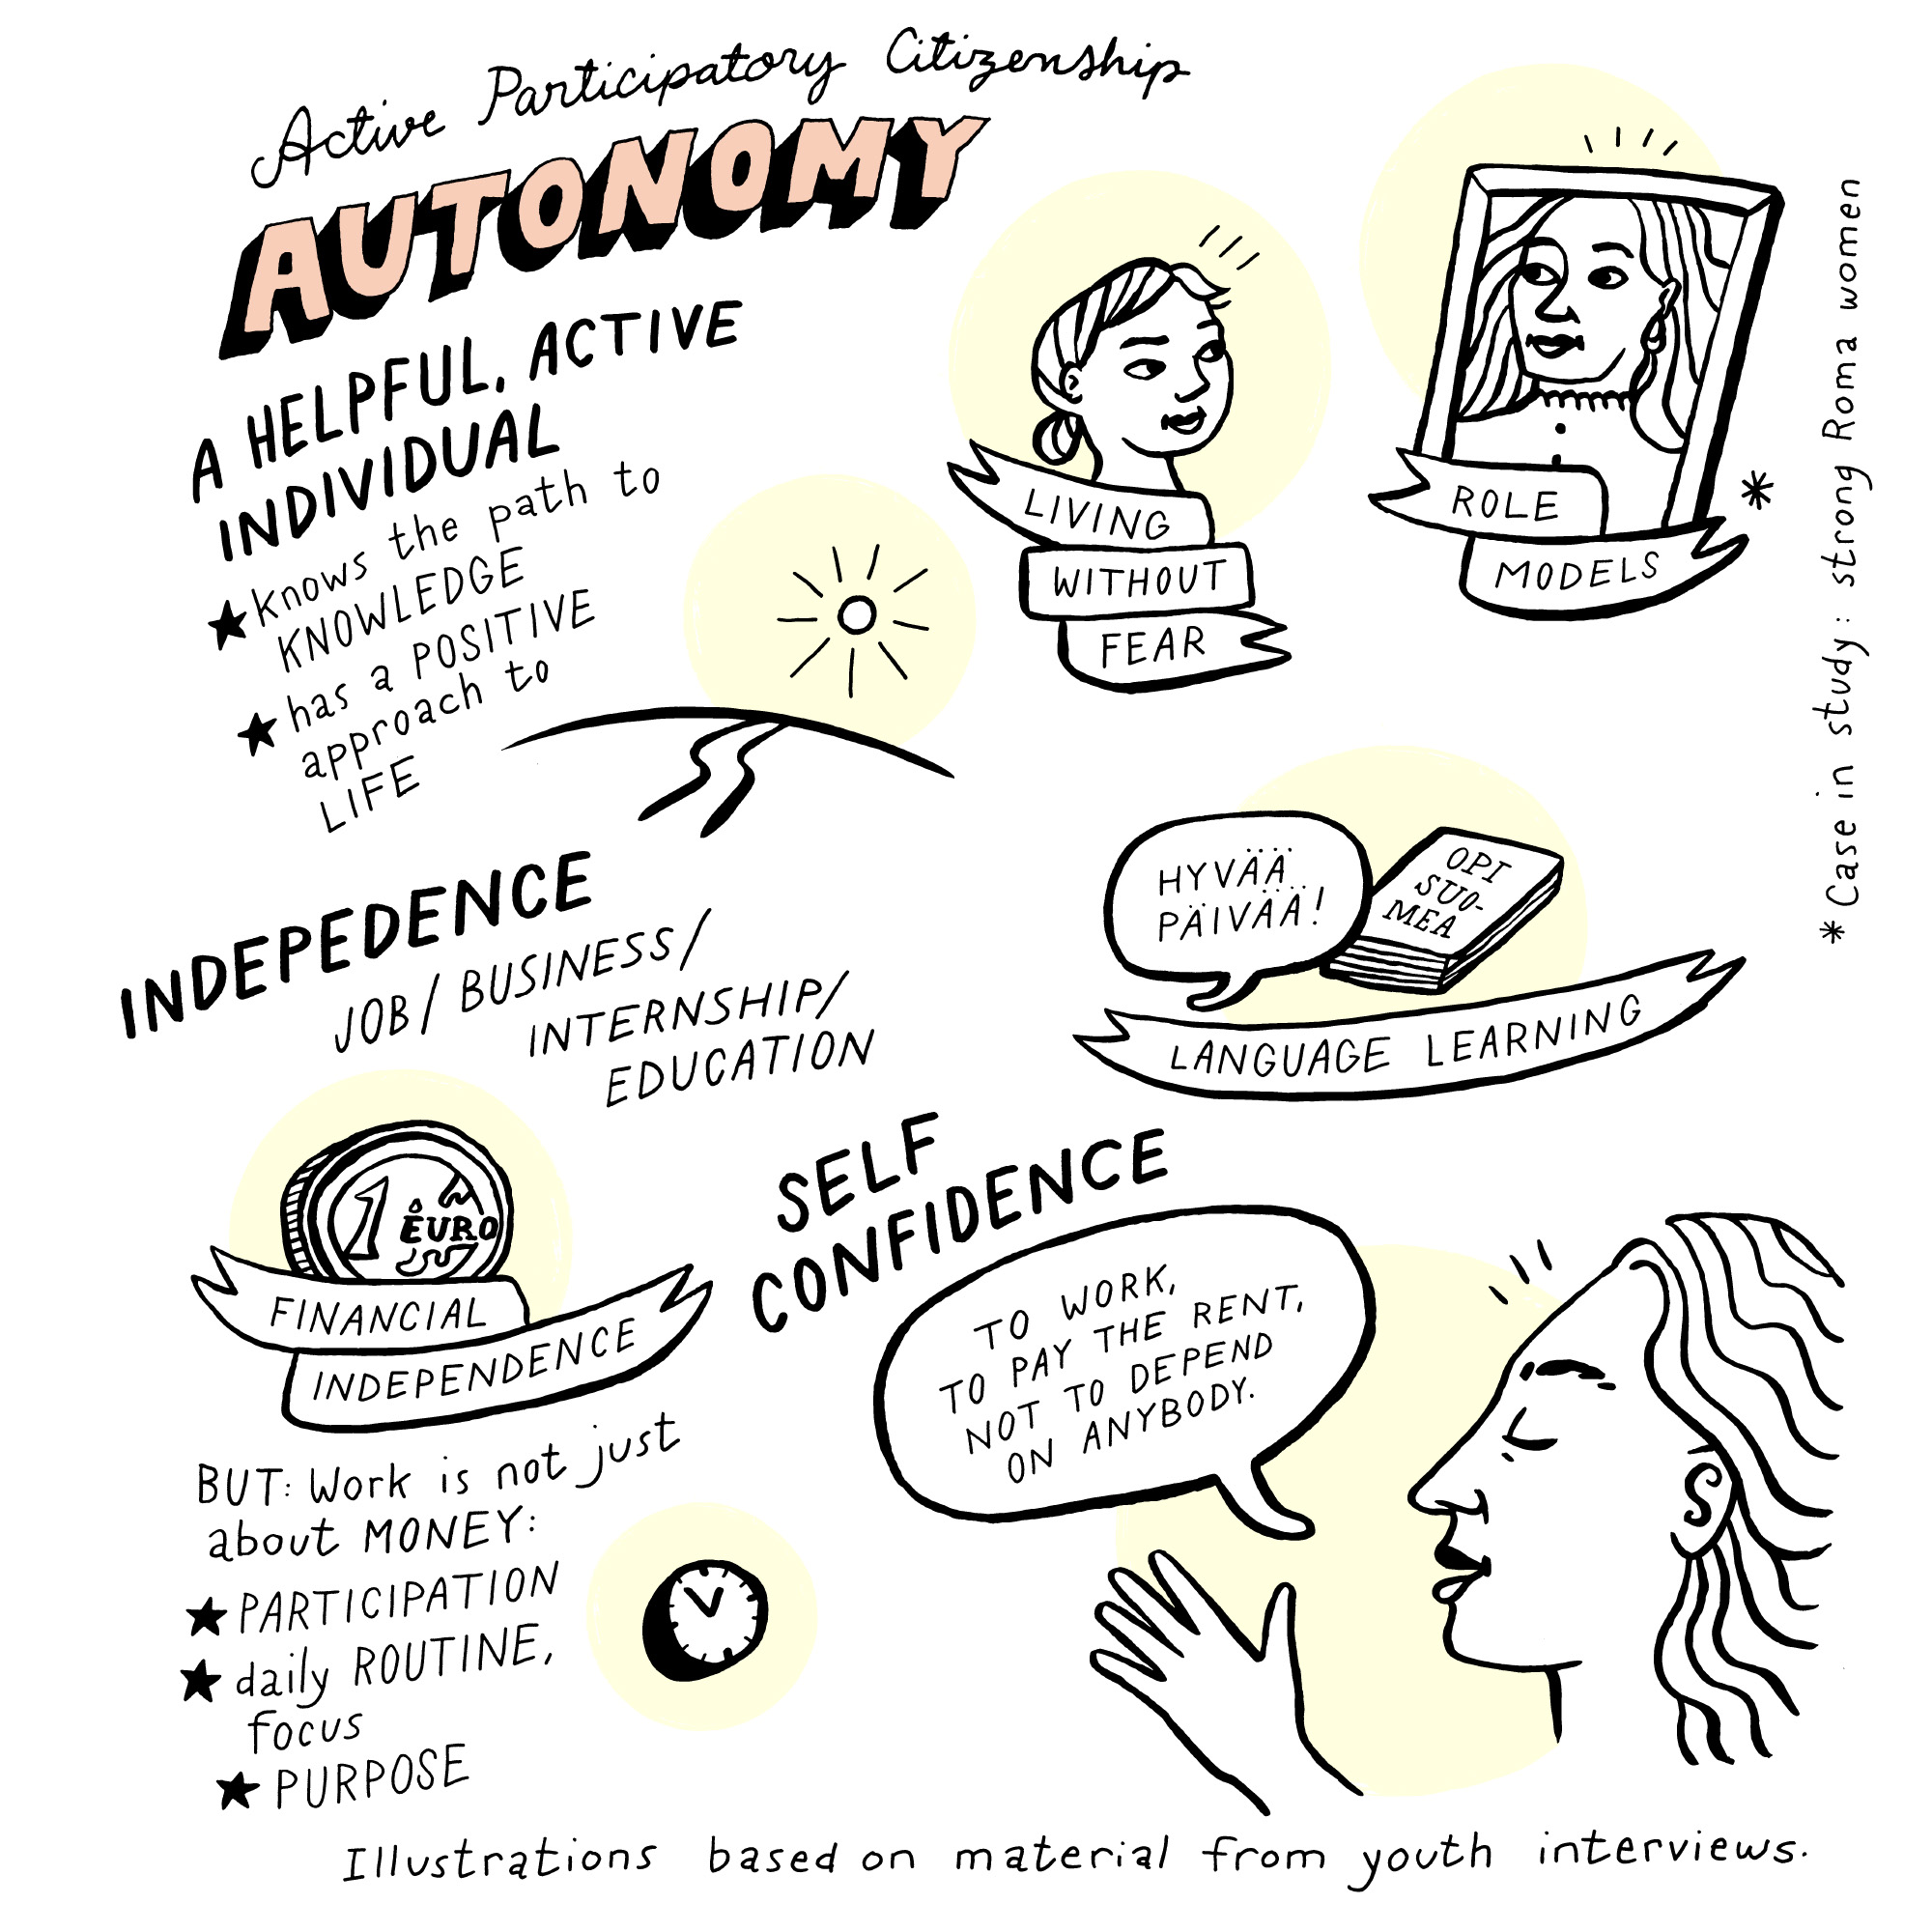 Active Participatory Citizenship
AUTONOMY
A HELPFUL, ACTIVE
INDIVIDUAL
★ knows the path to
KNOWLEDGE
★ has a POSITIVE
approach to
LIFE
LIVING
WITHOUT
FEAR
ROLE
MODELS
*
*Case in study: strong Roma women
INDEPEDENCE
JOB/ BUSINESS/
INTERNSHIP/
EDUCATION
HYVÄÄ
PÄIVÄÄ!
OPI
SUO-
MEA
LANGUAGE LEARNING
1 EURO
FINANCIAL
INDEPENDENCE
BUT: Work is not just
about MONEY:
★ PARTICIPATION
★ daily ROUTINE,
focus
★ PURPOSE
SELF
CONFIDENCE
TO WORK,
TO PAY THE RENT,
NOT TO DEPEND
ON ANYBODY.
Illustrations based on material from youth interviews.